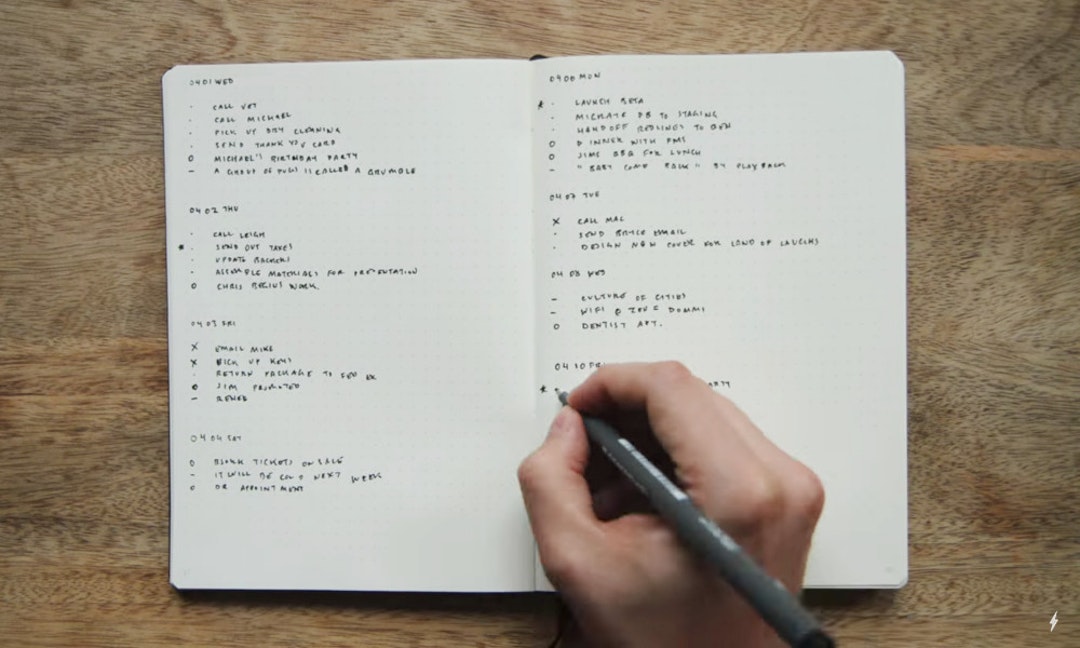 04 01 WED
· CALL VET
· CALL MICHAEL
· PICK UP DRY CLEANING
· SEND THANK YOU CARD
O MICHAEL'S BIRTHDAY PARTY
– A GROUP OF PUGS IS CALLED A GRUMBLE
04 02 THU
· CALL LEIGH
* · SEND OUT TAXES
· UPDATE BACKERS
· ASSEMBLE MATERIALS FOR PRESENTATION
O CHRIS BEGINS WORK.
04 03 FRI
X EMAIL MIKE
X PICK UP KEYS
· RETURN PACKAGE TO FED EX
O JIM PROMOTED
–
04 04 SAT
O TICKETS ON SALE
– IT WILL BE COLD NEXT WEEK
O DR APPOINTMENT
04 06 MON
* · LAUNCH BETA
· MIGRATE DB TO STAGING
· HANDOFF REDLINES TO BEN
O DINNER WITH PMS
O JIMS BBQ FOR LUNCH
– "BABY COME BACK" BY PLAYBACK
04 07 TUE
X CALL MAC
· SEND BRYCE EMAIL
· DESIGN NEW COVER FOR LAND OF LAUGHS
04 08 WED
– CULTURE OF CITIES
– WIFI @
O DENTIST APT.
04 10 FRI
*